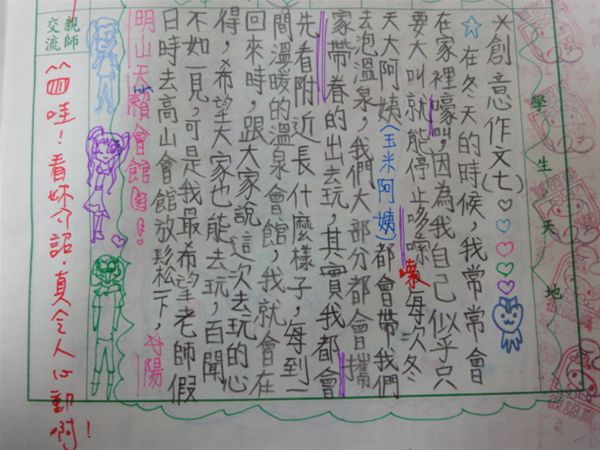 學生天地
創意作文(七)
☆在冬天的時候,我常常會
在家裡嚎叫,因為我自己似乎只
要大叫就能停止哆嗦,每次冬
嗦
天大阿姨(玉米阿姨)都會帶我們
去泡溫泉,我們大部分都會攜
家帶眷的出去玩,其實我都會
先看附近長什麼樣子,每到一
間溫暖的溫泉會館,我就會在
回來時,跟大家說這次去玩的心
得,希望大家也能去玩,百聞
不如一見,可是我最希望老師假
日時去高山會館放鬆一下,陽
明山天籟會館
親師交流
哇!看妳介詔,真令人心動啊!